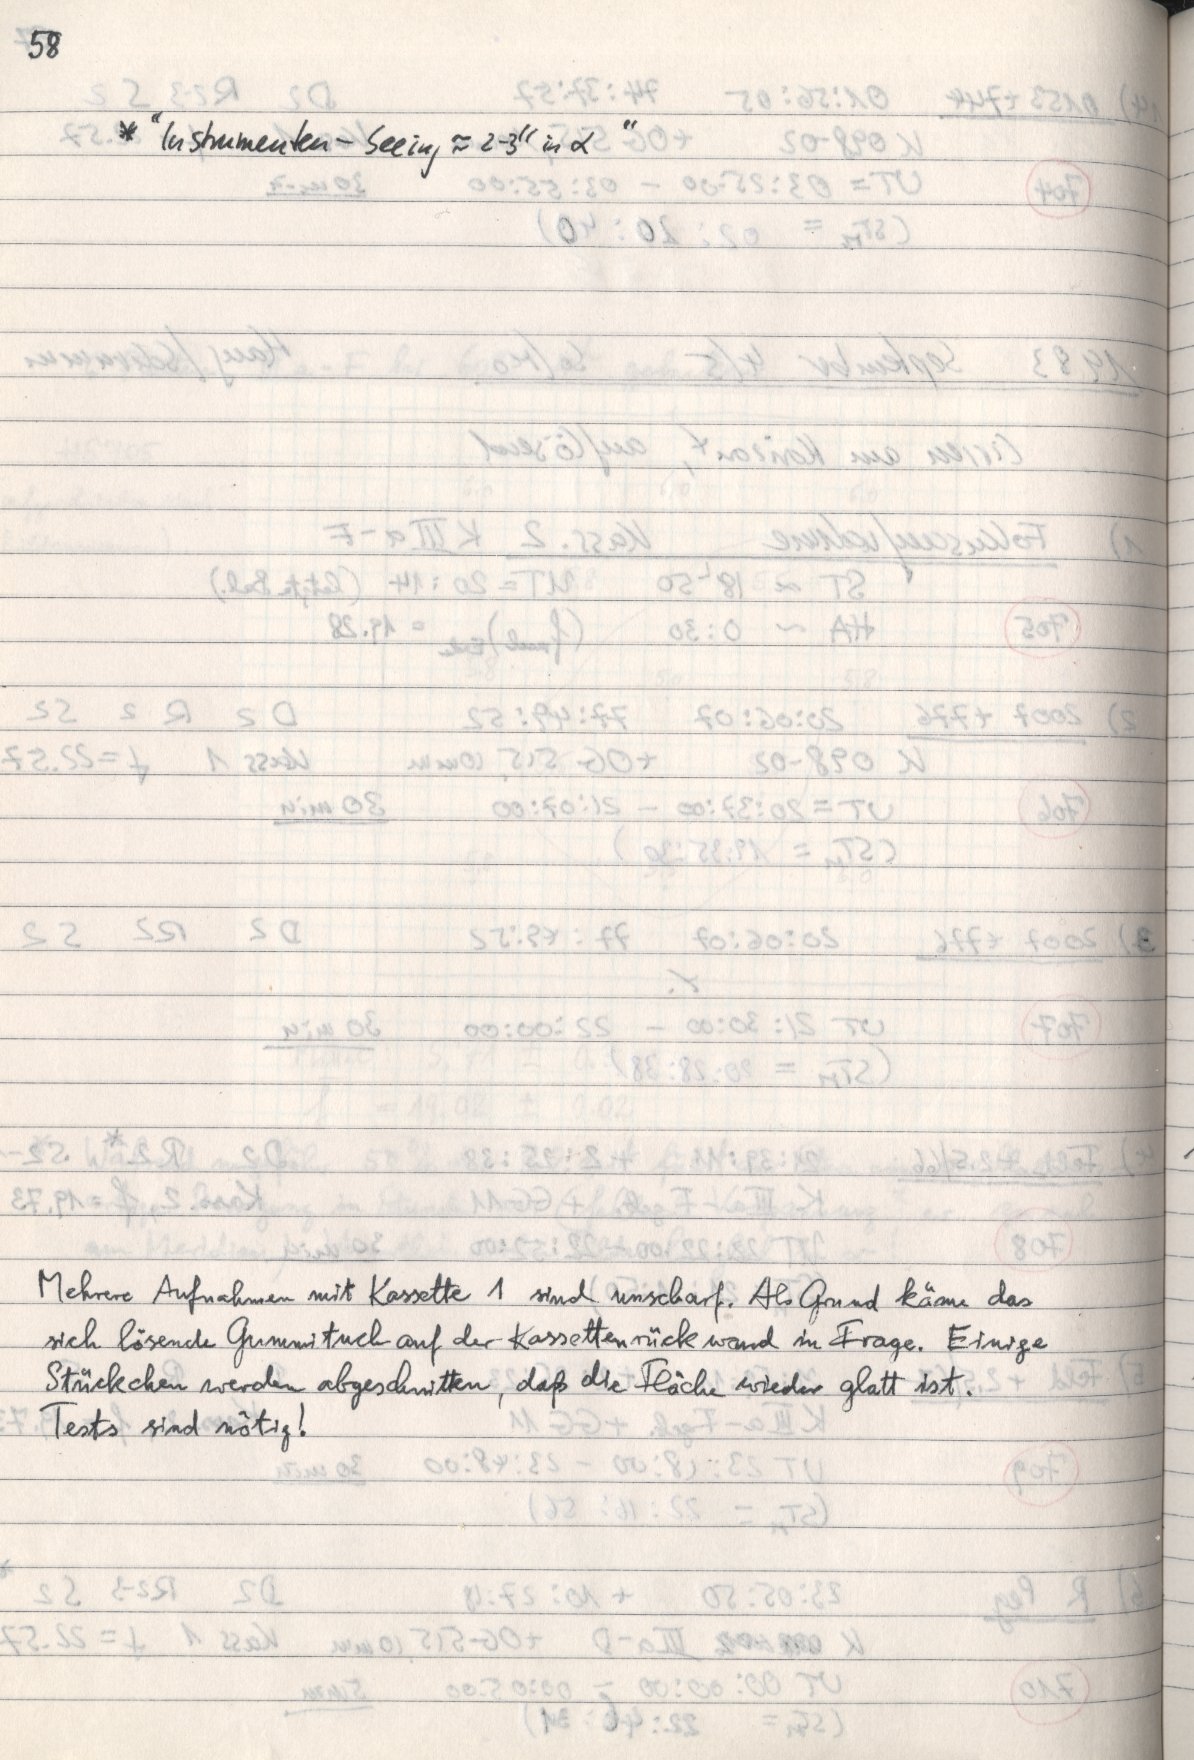 58
* "Instrumenten-Seeing ≈ 2-3" in α"
Mehrere Aufnahmen mit Kassette 1 sind unscharf. Als Grund käme das
sich lösende Gummituch auf der Kassettenrückwand in Frage. Einige
Stückchen werden abgeschnitten, daß die Fläche wieder glatt ist.
Tests sind nötig!